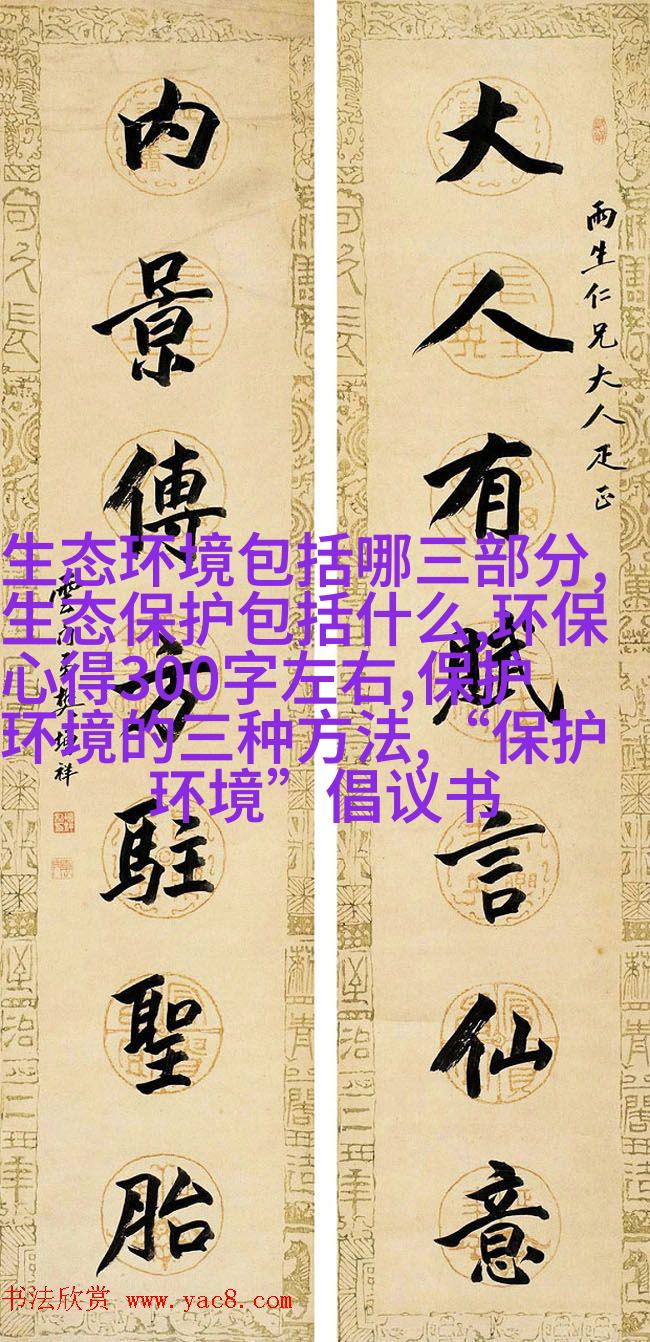 大人有賦言仙意
雨生仁兄大人疋正
內景傳方駐聖胎
雲門弟樊增祥
生态环境包括哪三部分,
生态保护包括什么,环保
心得300字左右,保护
环境的三种方法, “保护
环境” 倡议书
书法欣赏 www.yac8.com